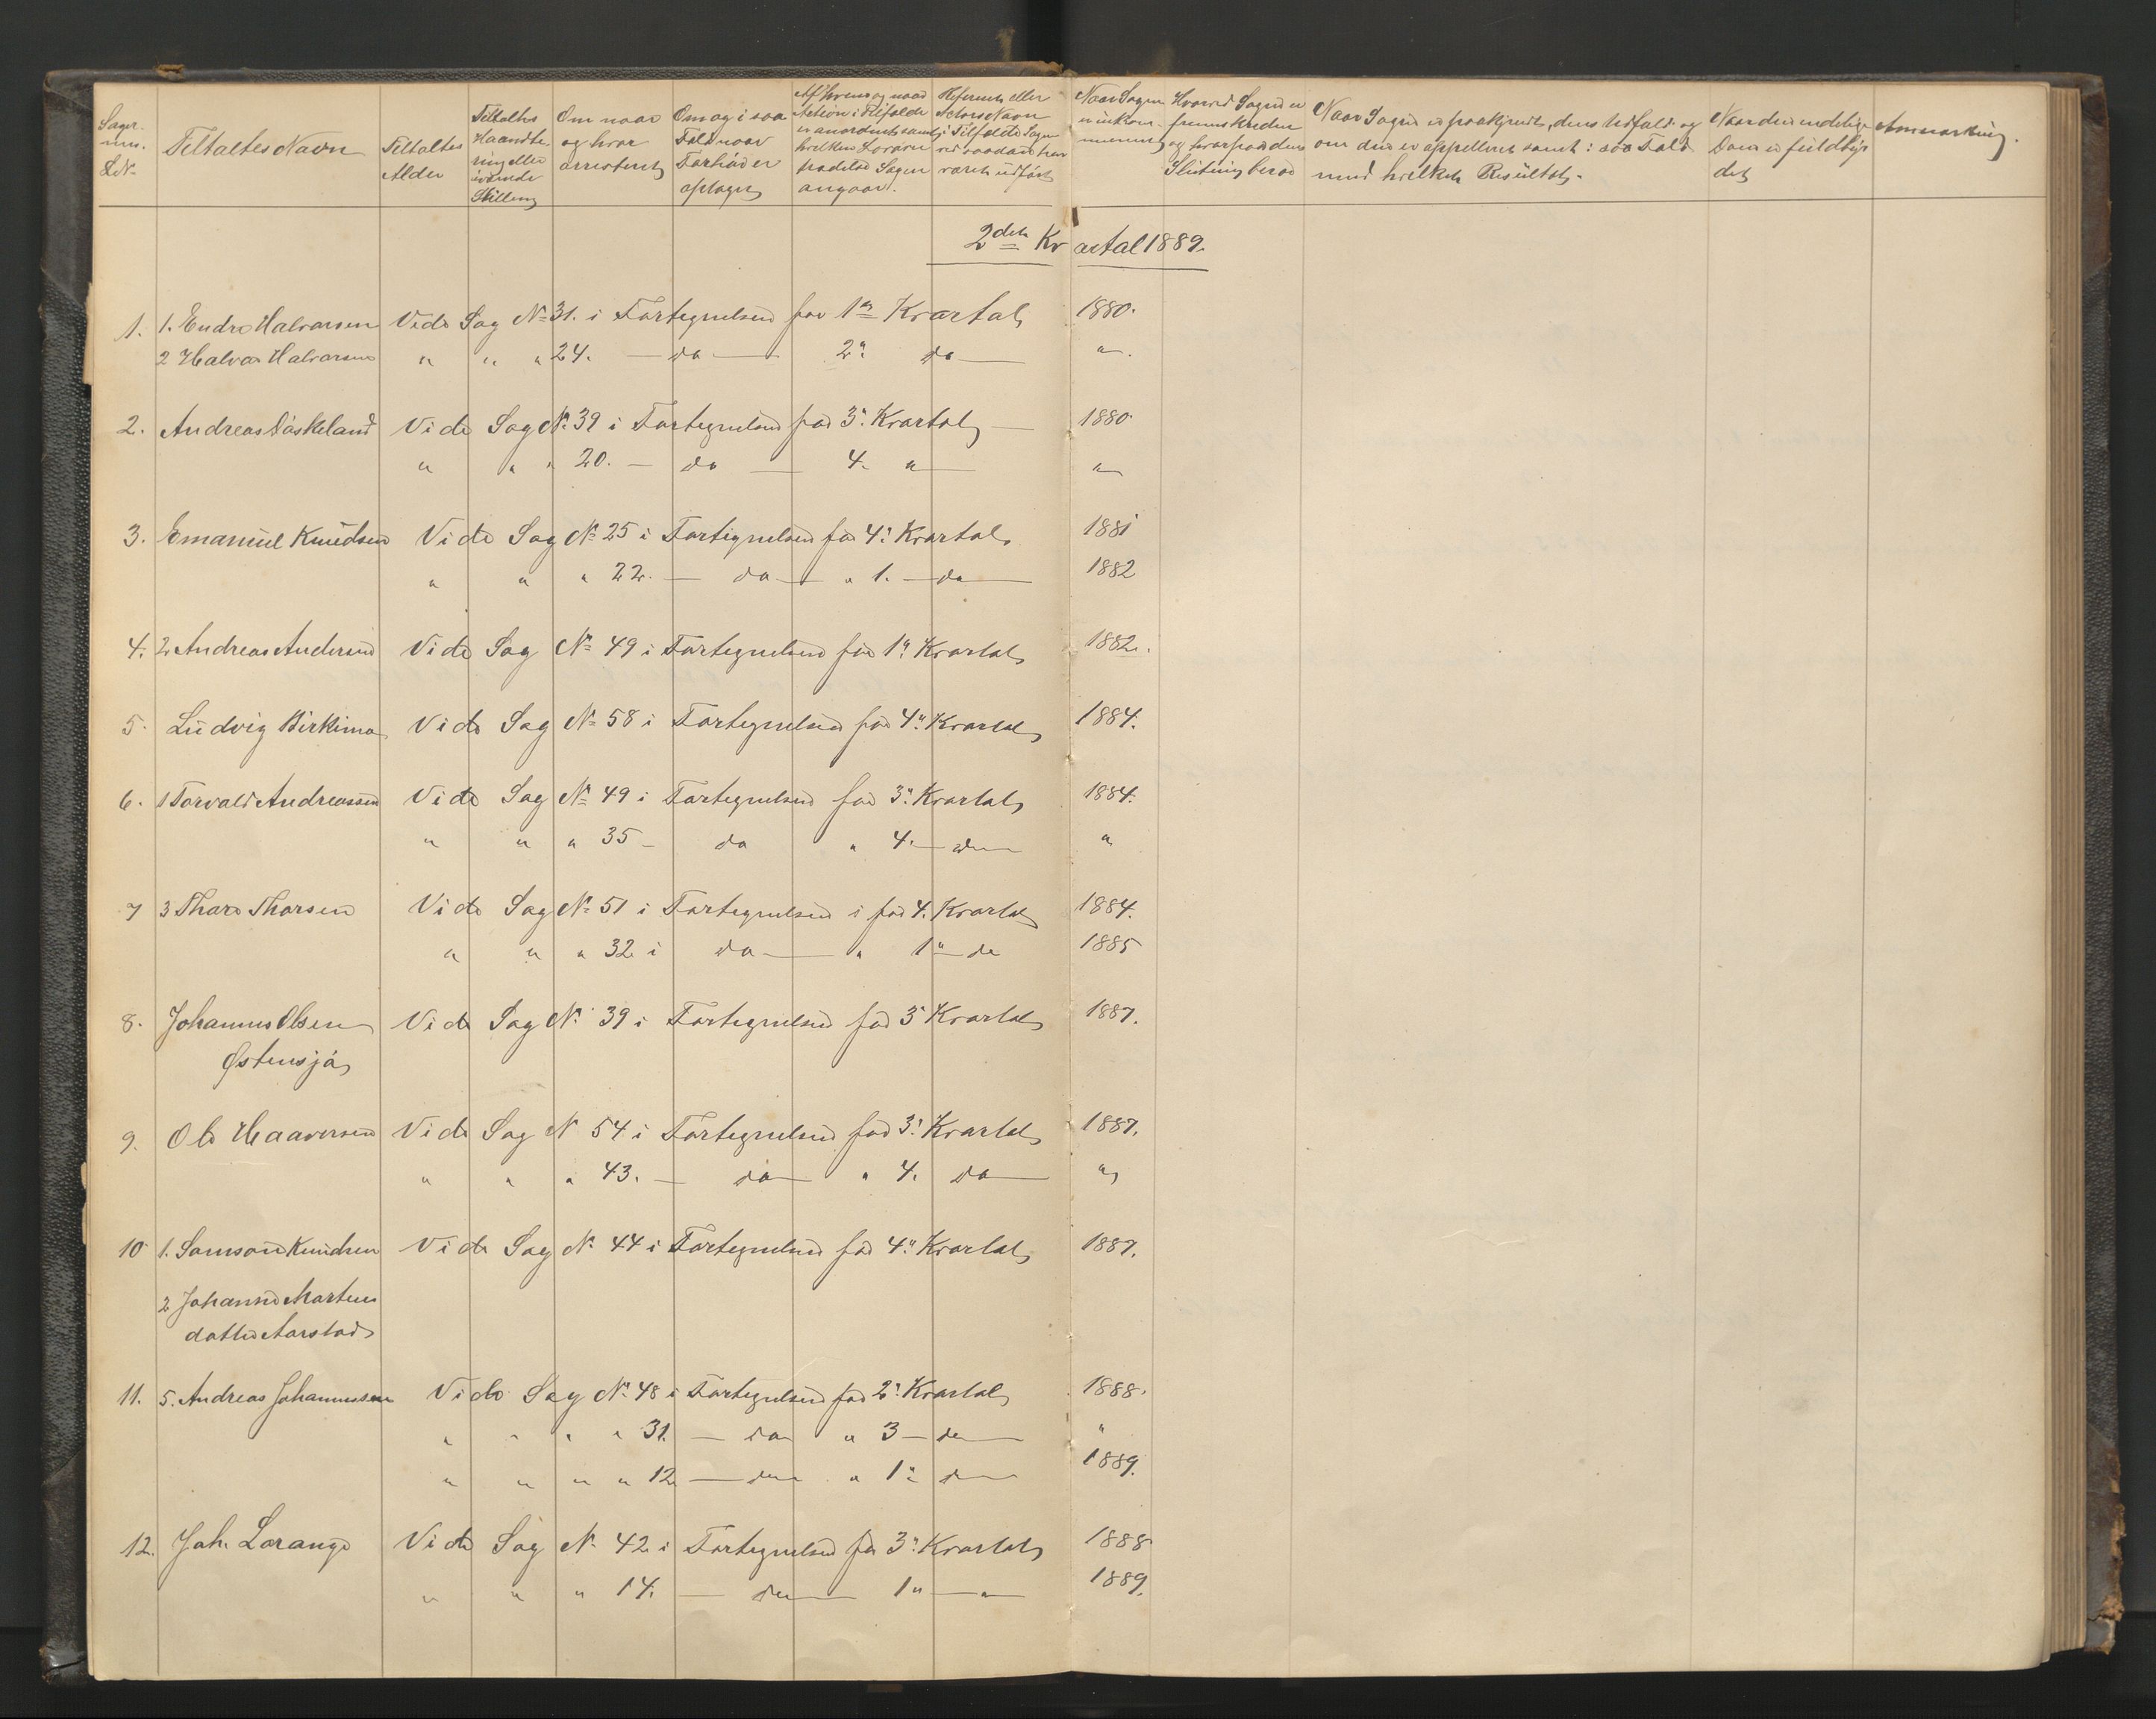 Sager-
nes.
L.N.
Tiltaltes Navn
Tiltaltes
Alder
Tiltaltes
Haandte-
ring eller
övrende
Stilling
Om naar
og hvor
arresteret
Om og i saa
Fald naar
Forhör er
optaget
Af hvem og naar
Aktion i Tilfælde
er anordnet samt
hvilken Lovover-
trædelse Sagen
angaar.
Referents eller
Actors Navn
i Tilfælde Sagen
ved saadan har
været udført
Naar Sagen
er inkom-
mened
Hvorvid Sagen er
fremskreden
og hvorpaa dens
Slutning beroer
Naar Sagen er paakjendt, dens Udfald og
om den er appelleret samt i saa Fald
med hvilket Resultat.
Naar den endelige
Dom er fuldbyr
det
Anmærkning.
2det Kvartal 1889.
1. 1. Endre Halvorsen Vide Sag No 31. i Fortegnelsen for 1ste Kvartal 1880.
2 Halvor Halvorsen " " " 24. — do — 2" do — "
2. Andreas Vaskeland Vide Sag No. 39 i Fortegnelsen for 3" Kvartal — 1880
" " " 20. — do — 4. " — "
3. Emanuel Knudsen Vide Sag No 25 i Fortegnelsen for 4" Kvartal 1881
" " " 22. — do — " 1. — do — 1882
4. 2 Andreas Andersen Vide Sag No 49 i Fortegnelsen for 1" Kvartal 1882.
5. Ludvig Birkimo Vide Sag No 58 i Fortegnelsen for 4" Kvartal 1884.
6. 1 Torvald Andreassen Vide Sag No 49 i Fortegnelsen for 3" Kvartal 1884.
" " " 35 — do " 4. — do "
7 3 Thore Thorsen Vide Sag No 51 i Fortegnelsen i for 4. Kvartal 1884.
" " " 32 i do — " 1" — do 1885
8. Johannes Olsen Vide Sag No 39 i Fortegnelsen for 3" Kvartal 1887.
Østensjø
9. Ole Haaversen Vide Sag N 54 i Fortegnelsen for 3" Kvartal 1887.
" " " 43. — do — " 4. do — "
10 1. Samson Knudsen Vide Sag No 44 i Fortegnelsen for 4" Kvartal 1887.
2 Johanne Marten
datter Aarstad
11. 5. Andreas Johannessen Vide Sag No 48 i Fortegnelsen for 2" Kvartal 1888.
" " " " 31. — do " 3 — do — "
" " " " 12 — do " 1" do 1889.
12. Joh. Lorange Vide Sag No 42 i Fortegnelsen for 3" Kvartal 1888
" " " 14. — do — 1" — " 1889.